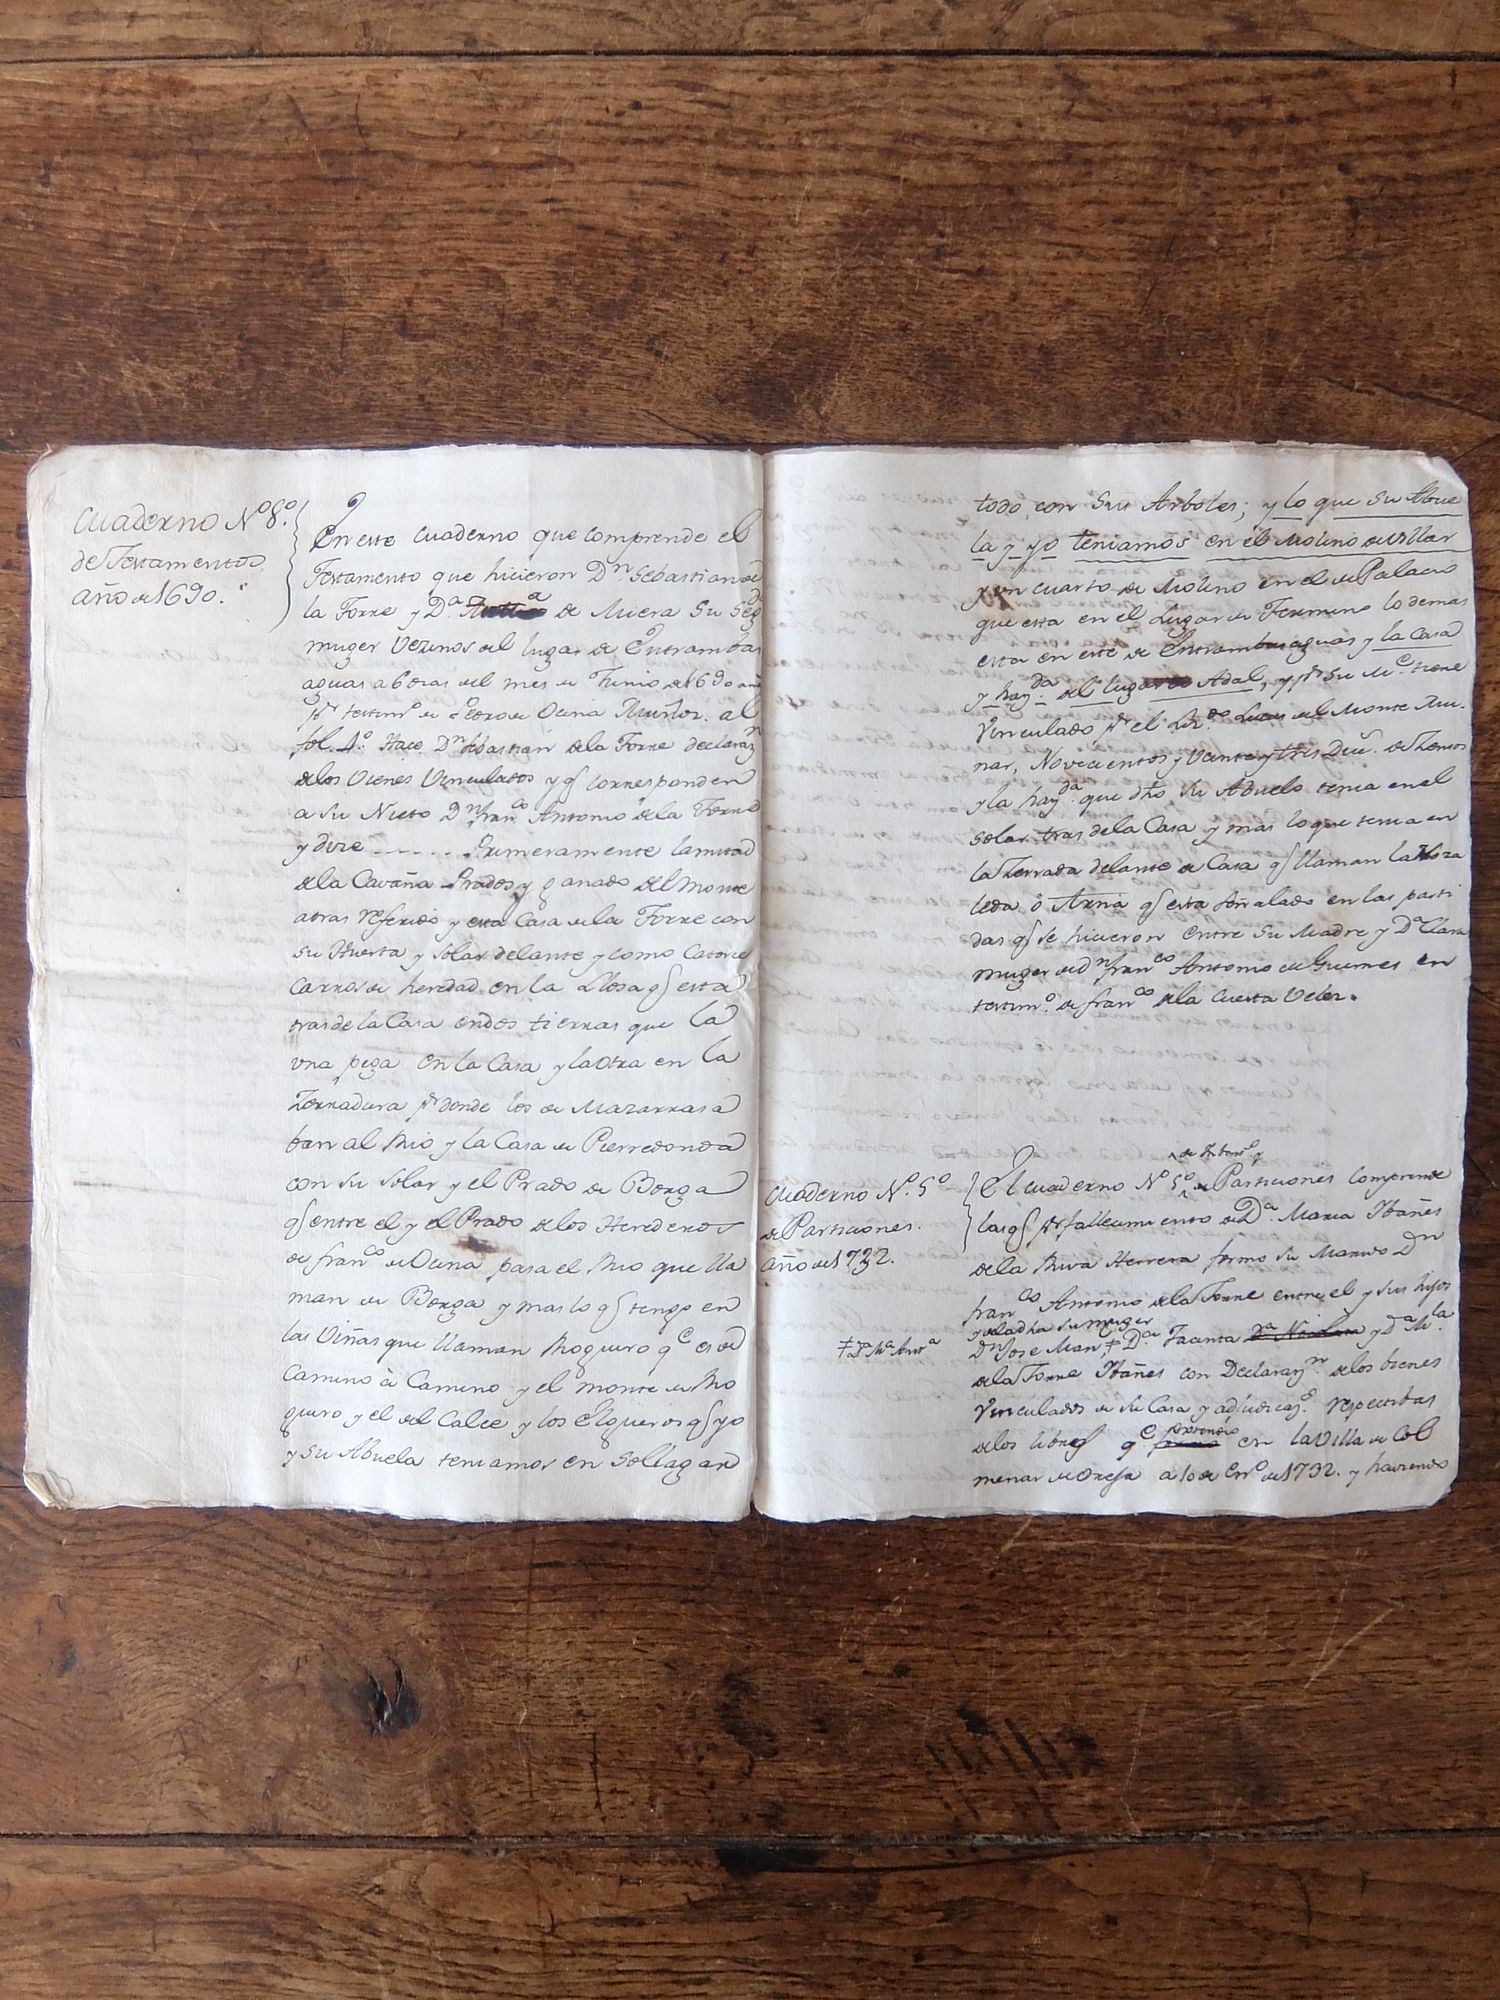 Cuaderno Nº 8º
de Testamentos,
año de 1690.
En este Cuaderno que comprende el
Testamento que hicieron Dn Sebastian de
la Torre y Dª de Miera Su Segda
muger Vezinos del lugar de Entrambas
aguas a 6 dias del mes de Junio de 1690 
pr testimº de Pedro de Ocina Muñoz. al
fol. 4º Hace Dn Sebastian de la Torre declarazn
de los Vienes Vinculados y q corresponden
a Su Nieto Dn Franco Antonio de la Torre
y dize - - - - - Primeramente la mitad
de la Cavaña Prados y ganado del Monte
atras referido y esta Casa de la Torre con
su Huerta y Solar delante y como Catorce
Carros de heredad en la Llosa q esta
tras de la Casa en dos tierras que la
una pega en la Casa y la Otra en la
Zerradura pr donde los de Mazarrasa
van al Rio y la Casa de Pierredonda
con su Solar y el Prado de Borga
q entre el y el Prado de los Herederos
de franco de Ocina pasa el Rio que lla
man de Borga y mas lo q tengo en
las Viñas que llaman Roguero qe es de
Camino à Camino y el monte de Ro
guero y el del Calce y los Elgueros q yo
y su Abuela teniamos en Sollagard
todo con Sus Arboles; y lo que Su Abue
la y yo teniamos en el Molino de Villar
y un cuarto de Molino en el de Palacio
que esta en el Lugar de Termino lo demas
esta en este de Entrambasaguas y la Casa
y hayda del lugar de Adal, y pr Su Me. tiene
Vinculado pr el Lizdo Lucas del Monte Mu.
nar, Novecientos y Veinte y tres Duc. de Zensos
y la hayda que dho su Abuelo tenia en el
Solar tras de la Casa y mas lo que tenia en
la Zerrada delante de Casa q llaman la Noza
leda ò Arna q esta señalado en las parti
das q se hicieron entre Su Madre y Dª Clara
muger de dn franco Antonio de Guemes en
testimº de franco de la Cuesta Velez.
Cuaderno Nº 5º
de Particiones.
año de 1732.
y
El cuaderno Nº 5º de Particiones comprende
las q pr fallecimiento de Dª Maria Ibañes
de la Riva Herrera formo su Marido Dn
franco Antonio de la Torre entre el y sus hijos
y de la dha su muger
‡ Dª Mª Antª
Dn Jose Manl ‡ Dª Jacinta Dª Nicolasa y Dª Mla
de la Torre Ibañes con Declarazn de los bienes
Vinculados de Su Casa y adjudicazº respectibas
de los libres qe pretendio en la Villa de Col
menar de Oreja a 10 de Enº de 1732. y haviendo